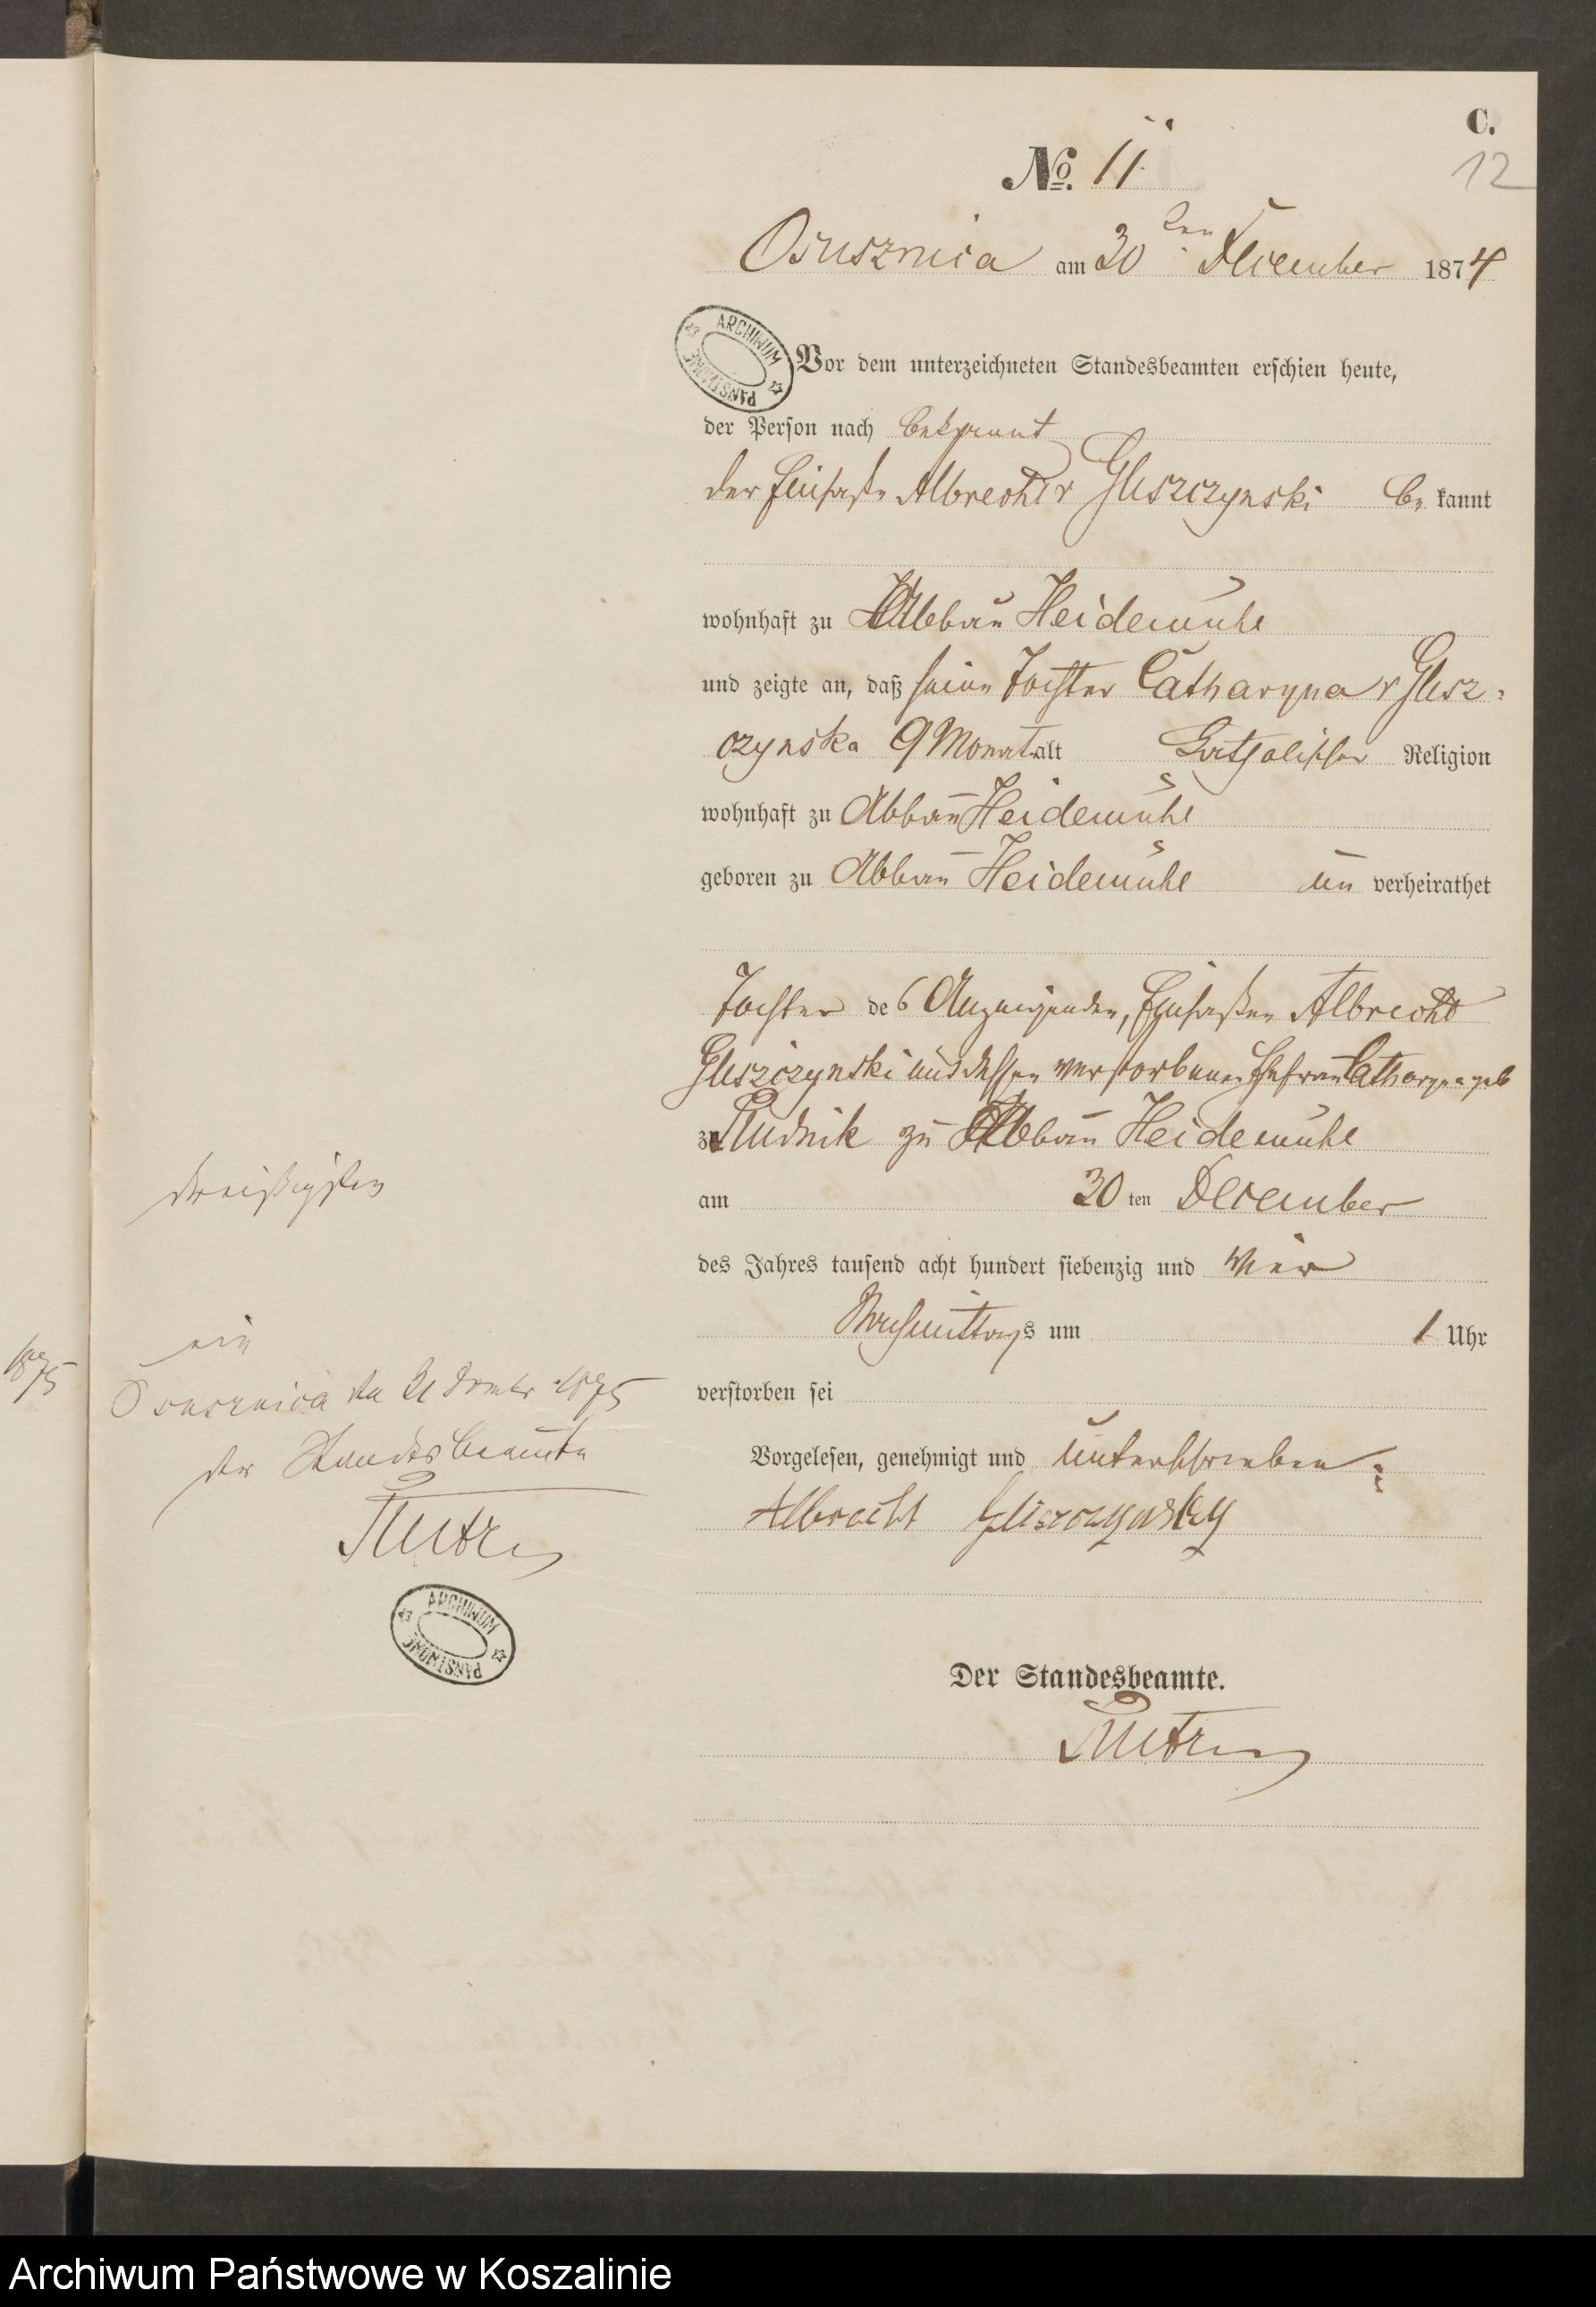 C.
12
No. 11.
Osusznica am 30ten December 1874
ARCHIWUM PAŃSTWOWE
Vor dem unterzeichneten Standesbeamten erschien heute,
der Person nach bekannt
der Einsaße Albrecht v Gliszczynski be kannt
wohnhaft zu Abbau Heidemühl
und zeigte an, daß seine Tochter Catharyna v Glisz-
czynska 9 Monat alt katholischer Religion
wohnhaft zu Abbau Heidemühl
geboren zu Abbau Heidemühl un verheirathet
Tochter des Anzeigenden, Einsaßen Albrecht
Gliszczynski und dessen verstorbenen Ehefrau Catharyna geb
zu Rudnik zu Abbau Heidemühl
am 30 ten December
des Jahres tausend acht hundert siebenzig und vier
Nachmittags um 1 Uhr
verstorben sei
Vorgelesen, genehmigt und unterschrieben:
Albrecht Gliszczynsky
Der Standesbeamte.
dreißigsten
ein
1875
Osusznica den 31 1875
der Standesbeamte
ARCHIWUM PAŃSTWOWE
Archiwum Państwowe w Koszalinie